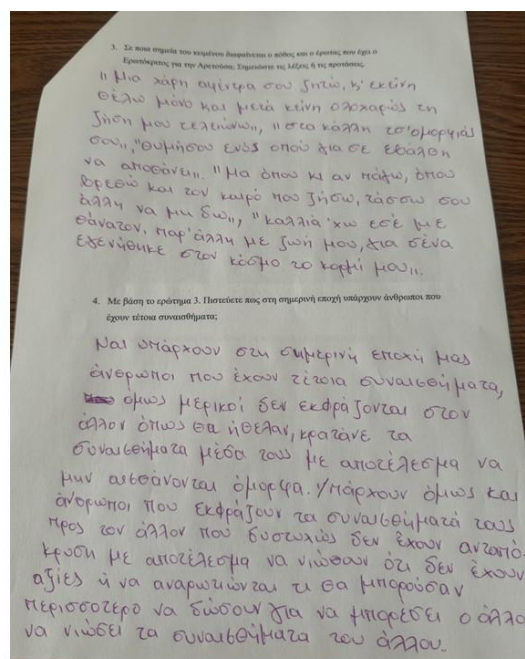 3. Σε ποια σημεία του κειμένου διαφαίνεται ο πόθος και ο έρωτας που έχει ο
Ερωτόκριτος για την Αρετούσα; Σημειώστε τις λέξεις ή τις προτάσεις.
" Μια χάρη αφέντρα σου ζητώ, κι' εκείνη
θέλω μόνο και μετά κείνη ολοχαρώς τη
ζήση μου τελειώνω", "στα κάλλη τσ'ομορφιάς
σου", "θυμήσου ενός οπού για σε εβάλθη
να αποθάνει". "Μα όπου κι αν πάγω, όπου
βρεθώ και τον καιρό που ζήσω, τάσσω σου
άλλη να μη δω", "καλλιά 'χω εσέ με
θάνατον, παρ'άλλη με ζωή μου, για σένα
εγενήθηκε στον κόσμο το κορμί μου".
4. Με βάση το ερώτημα 3. Πιστεύετε πως στη σημερινή εποχή υπάρχουν άνθρωποι που
έχουν τέτοια συναισθήματα;
Ναι υπάρχουν στη σημερινή εποχή μας
άνθρωποι που έχουν τέτοια συναισθήματα,
όμως μερικοί δεν εκφράζονται στον
άλλον όπως θα ήθελαν, κρατάνε τα
συναισθήματα μέσα τους με αποτέλεσμα να
μην αισθάνονται όμορφα. Υπάρχουν όμως και
άνθρωποι που εκφράζουν τα συναισθήματά τους
προς τον άλλον που δυστυχώς δεν έχουν ανταπό-
κρυση με αποτέλεσμα να νιώθουν ότι δεν έχουν
αξίες ή να αναρωτιώνται τι θα μπορούσαν
περισσότερο να δώσουν για να μπορέσει ο άλλο
να νιώσει τα συναισθήματα του άλλου.